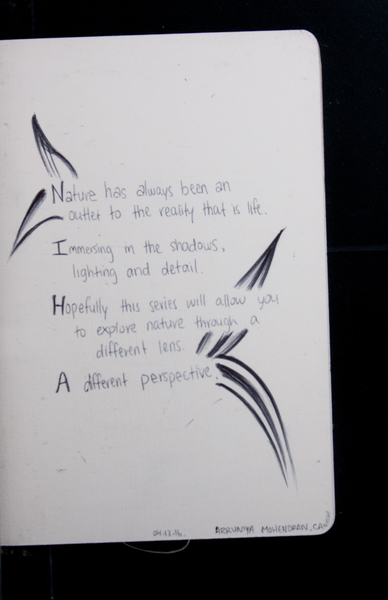 Nature has always been an
outlet to the reality that is life.
Immersing in the shadows,
lighting and detail.
Hopefully this series will allow you
to explore nature through a
different lens.
A different perspective.
ARRUNYA MOHENDRAN, CA